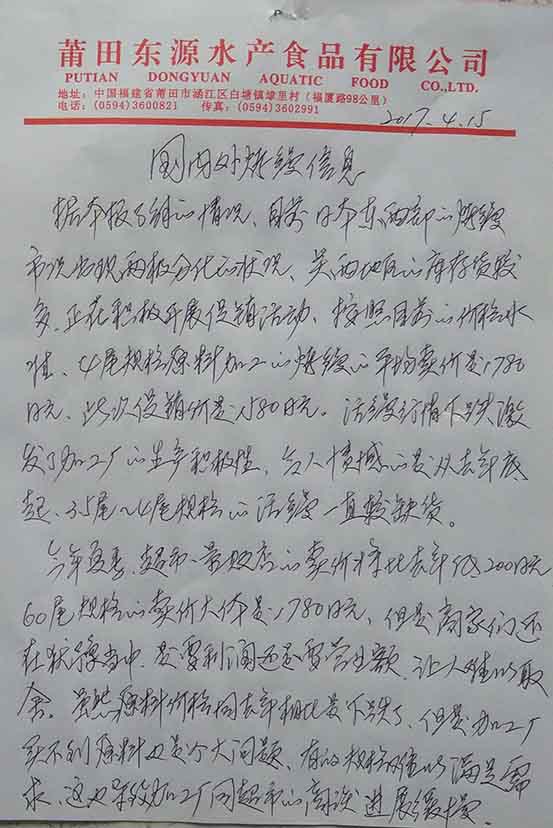 莆田东源水产食品有限公司
PUTIAN DONGYUAN AQUATIC FOOD CO.,LTD.
地址：中国福建省莆田市涵江区白塘镇埭里村（福厦路98公里）
电话：(0594)3600821 传真：(0594)3602991
2017.4.15
国内外烤鳗信息
据本报了解的情况、目前日本东西部的烤鳗
市况出现两极分化的状况、关西地区的库存货较
多、正在积极开展促销活动、按照目前的价格水
准、4尾规格原料加工的烤鳗的平均卖价是1780
日元、此次促销价是1580日元。活鳗行情下跌激
发了加工厂的生产积极性、令人遗憾的是从去年底
起、3.5尾～4尾规格的活鳗一直较缺货。
今年夏季、超市、量贩店的卖价将比去年低200日元
60尾规格的卖价大体是1780日元、但是商家们还
在犹豫当中、是要利润还是要营业额、让人难以取
舍。虽然原料价格同去年相比是下跌了、但是加工厂
买不到原料也是个大问题、有的规格难以满足需
求、这也导致加工厂同超市的商谈进展缓慢。